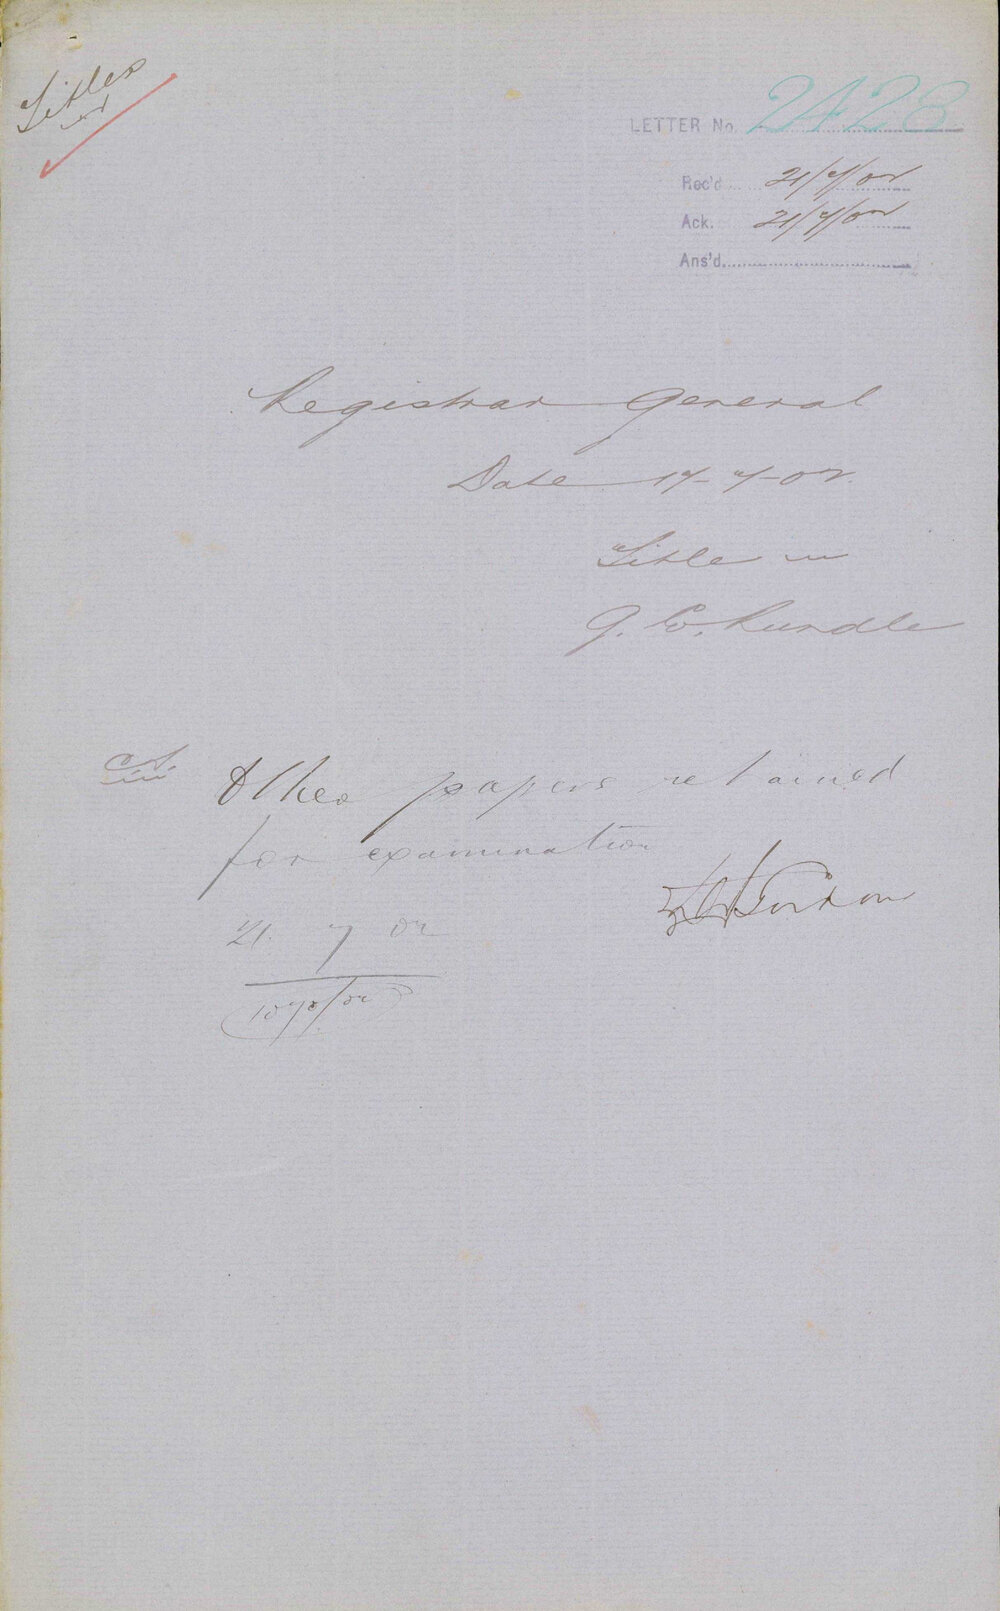 Titles
LETTER No. 2428
Rec'd 21/7/02
Ack. 21/7/02
Ans'd
Registrar General
Date 17-7-02
Title in
G. W. Rundle
Other papers retained
for examination
21. 7 02